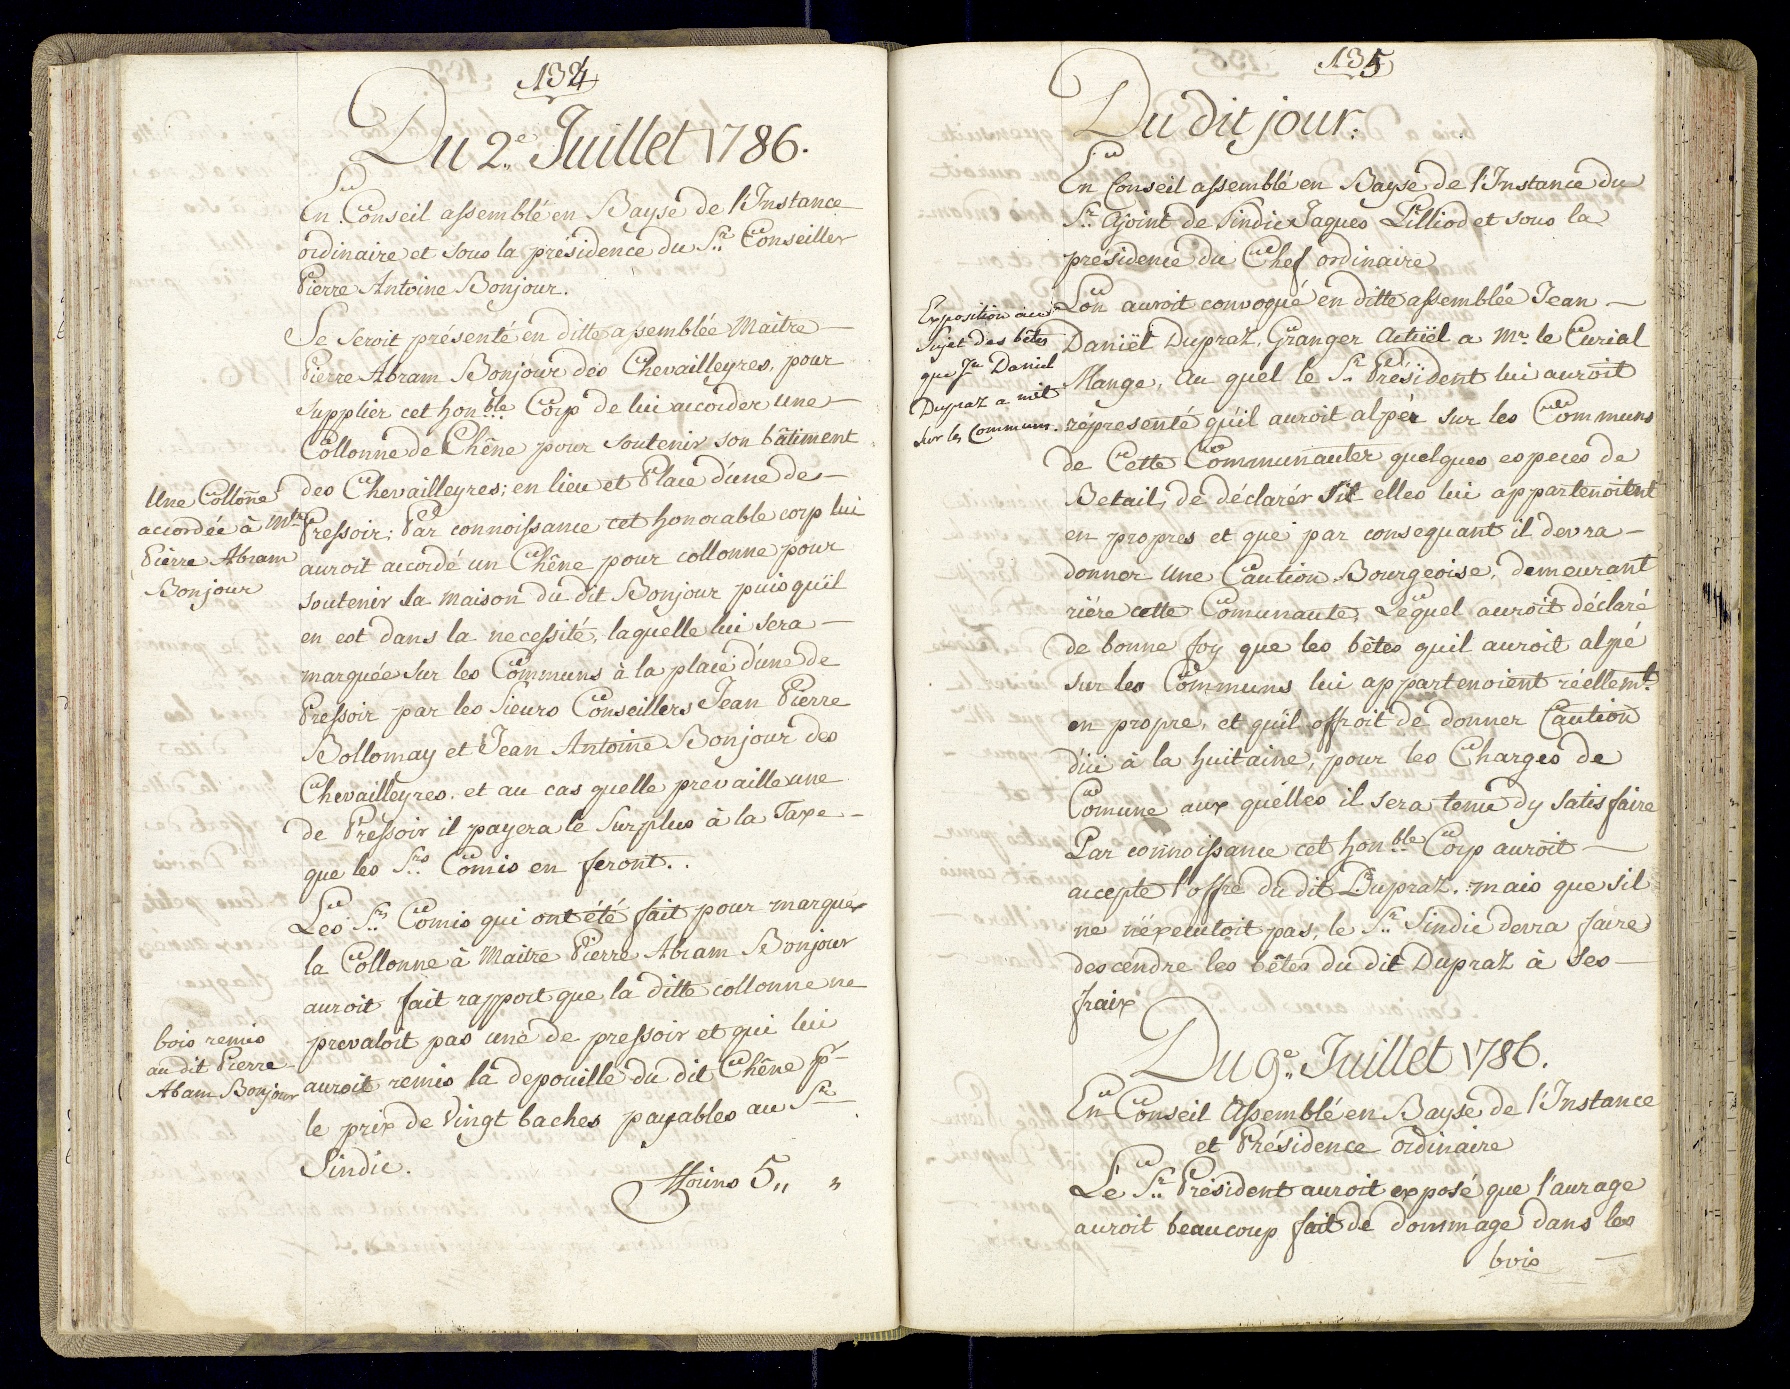 134
Du 2.e Juillet 1786.
En Conseil assemblé en Bayse de l'Instance
ordinaire et sous la présidence du Sr. Conseiller
Pierre Antoine Bonjour.
Se seroit présenté en ditte assemblée Maitre
Pierre Abram Bonjour des Chevailleyres, pour
supplier cet honble. Corp de lui accorder une
Collonne de Chêne pour soutenir son bâtiment
des Chevailleyres; en lieu et Place d'une de
Pressoir; Par connoissance cet honorable corp lui
auroit accordé un Chêne pour collonne pour
soutenir la maison du dit Bonjour puis qu'il
en est dans la necessité, laquelle lui sera
marquée sur les Communs à la place d'une de
Pressoir par les Sieurs Conseillers Jean Pierre
Bollomay et Jean Antoine Bonjour des
Chevailleyres. et au cas quelle prevaille une
de Pressoir il payera le surplus à la Taxe
que les Srs. Comis en feront.
Une Collone
accordée à Mtre
Pierre Abram
Bonjour
Les Srs. Comis qui ont été fait pour marquer
la Collonne à Maitre Pierre Abram Bonjour
auroit fait rapport que la ditte collonne ne
prevaloit pas une de pressoir et qui lui
auroit remis la depouille du dit Chêne pr
le prix de Vingt baches payables au Sr
Sindic.
fflorins 5 ,, ,,
bois remis
au dit Pierre
Abam Bonjour
135
Du dit jour.
En Conseil assemblé en Bayse de l'Instance du
Sr. Ajoint de Sindic Jaques Pilliod et sous la
présidence du Chef ordinaire
L'on auroit convoqué en ditte assemblée Jean
Daniël Dupraz, Granger Actüel a Mr. le Curial
Mange, Au quel le Sr. Président lui auroit
répresenté qu'il auroit alpér sur les Communs
de Cette Communauter quelques especes de
Betail, de déclarér s'il elles lui appartenoitent
en propres et que par consequant il devra
donner Une Caution Bourgeoise, demeurant
riére cette Comunaute, Lequel auroit déclaré
de bonne foy que les bêtes quil auroit alpé
sur les Communs lui appartenoient réellemt.
en propre, et qu'il offroit de donner Caution
d'ici à la huitaine, pour les Charges de
Comune aux quélles il sera tenu dy satisfaire
Par connoissance cet honble. Corp auroit
accepte l'offre du dit Dupraz. mais que s'il
ne n'éxecutoit pas, le Sr. Sindic devra faire
descendre les bêtes du dit Dupraz à ses
fraix
Exposition au
Sujet des bêtes
que Jn Daniel
Dupraz a mit
sur les Communs.
Du 9.e Juillet 1786.
En Conseil Assemblé en Bayse de l'Instance
et Présidence ordinaire
Le Sr. Président auroit exposé que l'aurage
auroit beaucoup fait de dommage dans les
bois